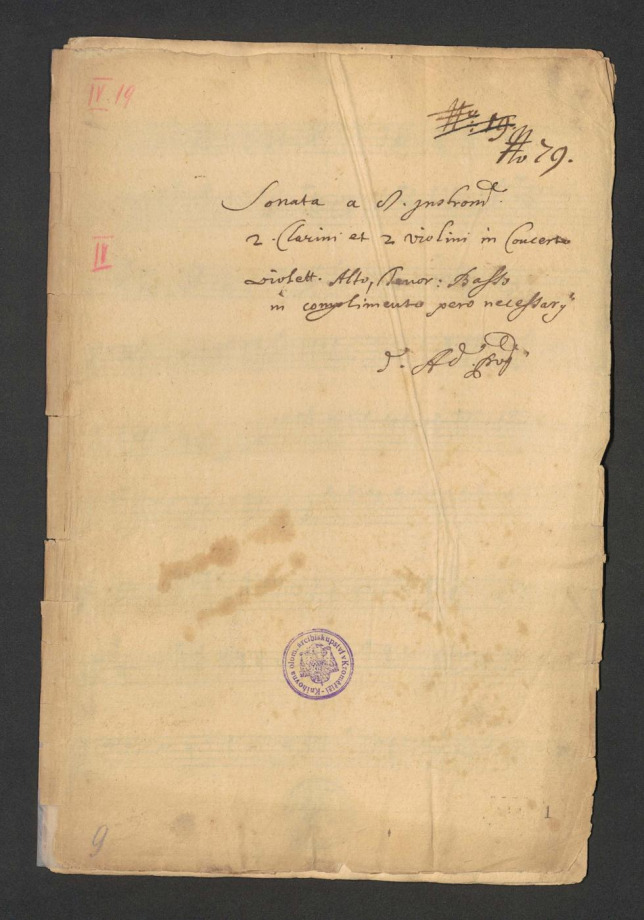 IV. 19
No: 19.
No 79.
Sonata a 8. Instrom.
2. Clarini et 2 violini in Concerto
IV
violett. Alto, Tenor: Basso
in complimento pero necessary
Knihovna olom. arcibiskupství v Kroměříži
9
1